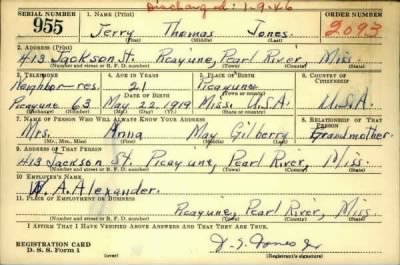 Discharged: 1-9-46
SERIAL NUMBER 1. NAME (Print) ORDER NUMBER
955 Jerry Thomas Jones 2093
(First) (Middle) (Last)
2. ADDRESS (Print)
413 Jackson St. Picayune, Pearl River, Miss.
(Number and street or R. F. D. number) (Town) (County) (State)
3. TELEPHONE 4. AGE IN YEARS 5. PLACE OF BIRTH 6. COUNTRY OF CITIZENSHIP
Neighbor-res. 21 Picayune
DATE OF BIRTH (Town or county)
Picayune 63 May 22, 1919 Miss. U.S.A. U.S.A.
(Exchange) (Number) (Mo.) (Day) (Yr.) (State or country)
7. NAME OF PERSON WHO WILL ALWAYS KNOW YOUR ADDRESS 8. RELATIONSHIP OF THAT PERSON
Mrs. Anna May Gilberry Grandmother
(Mr., Mrs., Miss) (First) (Middle) (Last)
9. ADDRESS OF THAT PERSON
413 Jackson St. Picayune, Pearl River, Miss.
(Number and street or R. F. D. number) (Town) (County) (State)
10. EMPLOYER'S NAME
W. A. Alexander.
11. PLACE OF EMPLOYMENT OR BUSINESS
Picayune, Pearl River, Miss.
(Number and street or R. F. D. number) (Town) (County) (State)
I AFFIRM THAT I HAVE VERIFIED ABOVE ANSWERS AND THAT THEY ARE TRUE.
REGISTRATION CARD
D. S. S. Form 1 (Registrant's signature)